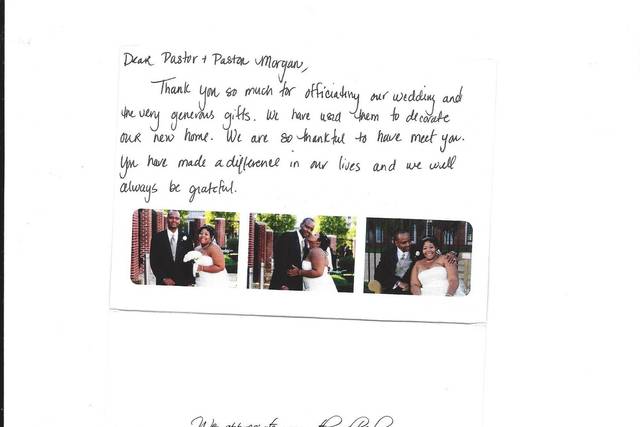 Dear Pastor + Pastor Morgan,
Thank you so much for officiating our wedding and
the very generous gifts. We have used them to decorate
our new home. We are so thankful to have meet you.
You have made a difference in our lives and we will
always be grateful.